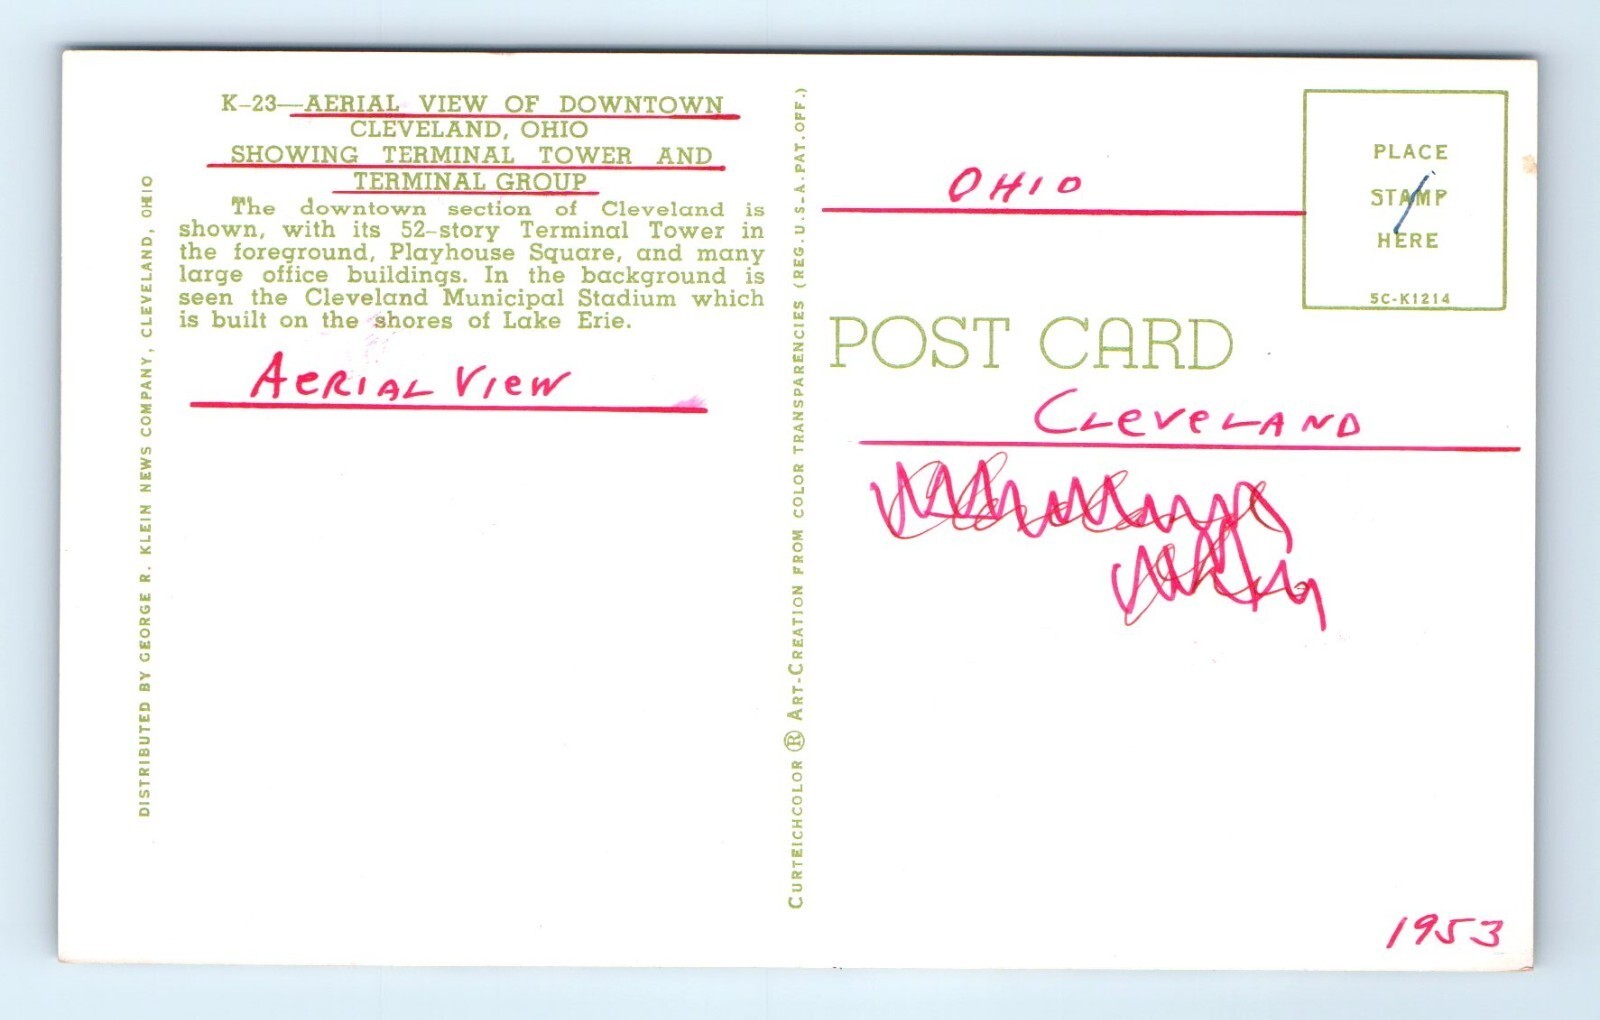 K-23—AERIAL VIEW OF DOWNTOWN
CLEVELAND, OHIO
SHOWING TERMINAL TOWER AND
TERMINAL GROUP
The downtown section of Cleveland is
shown, with its 52-story Terminal Tower in
the foreground, Playhouse Square, and many
large office buildings. In the background is
seen the Cleveland Municipal Stadium which
is built on the shores of Lake Erie.
AERIAL VIEW
DISTRIBUTED BY GEORGE R. KLEIN NEWS COMPANY, CLEVELAND, OHIO
CURTEICHCOLOR ® ART-CREATION FROM COLOR TRANSPARENCIES (REG. U.S.A. PAT. OFF.)
OHIO
PLACE
STAMP
HERE
5C-K1214
POST CARD
CLEVELAND
1953